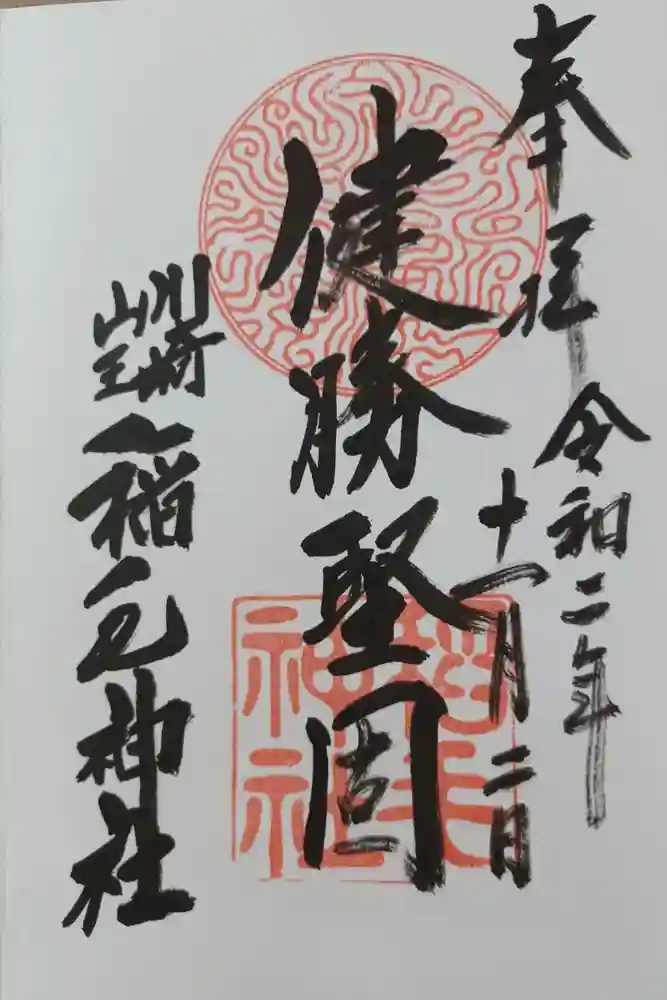 奉拝
令和二年
十一月二日
健勝堅固
川崎
山王
稲毛神社
稲毛神社